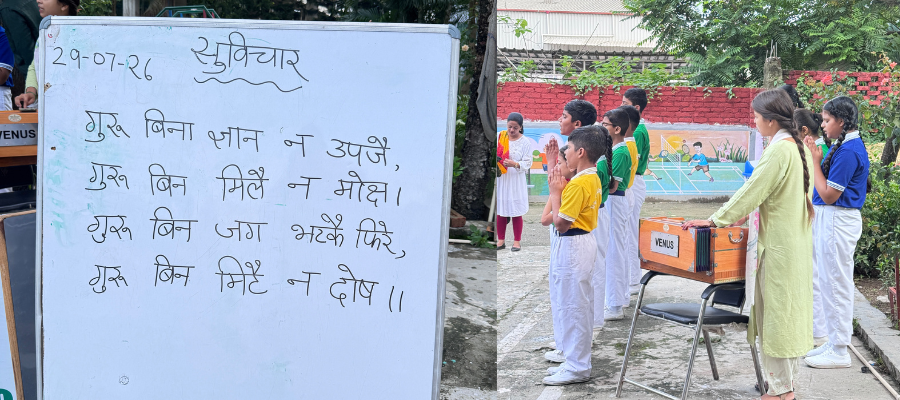 29-07-26 सुविचार
गुरू बिना ज्ञान न उपजै,
गुरू बिन मिलै न मोक्ष।
गुरू बिन जग भटकै फिरे,
गुरू बिन मिटै न दोष ॥
VENUS
VENUS